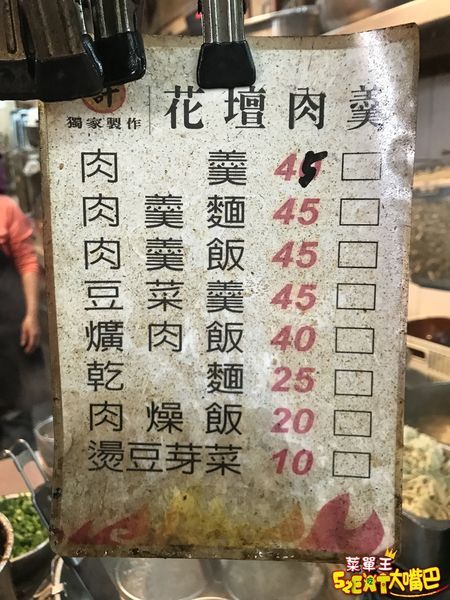 許
獨家製作 花壇肉羹
肉羹 45
肉羹麵 45
肉羹飯 45
豆菜羹 45
爌肉飯 40
乾麵 25
肉燥飯 20
燙豆芽菜 10
菜單王
52EAT大嘴巴